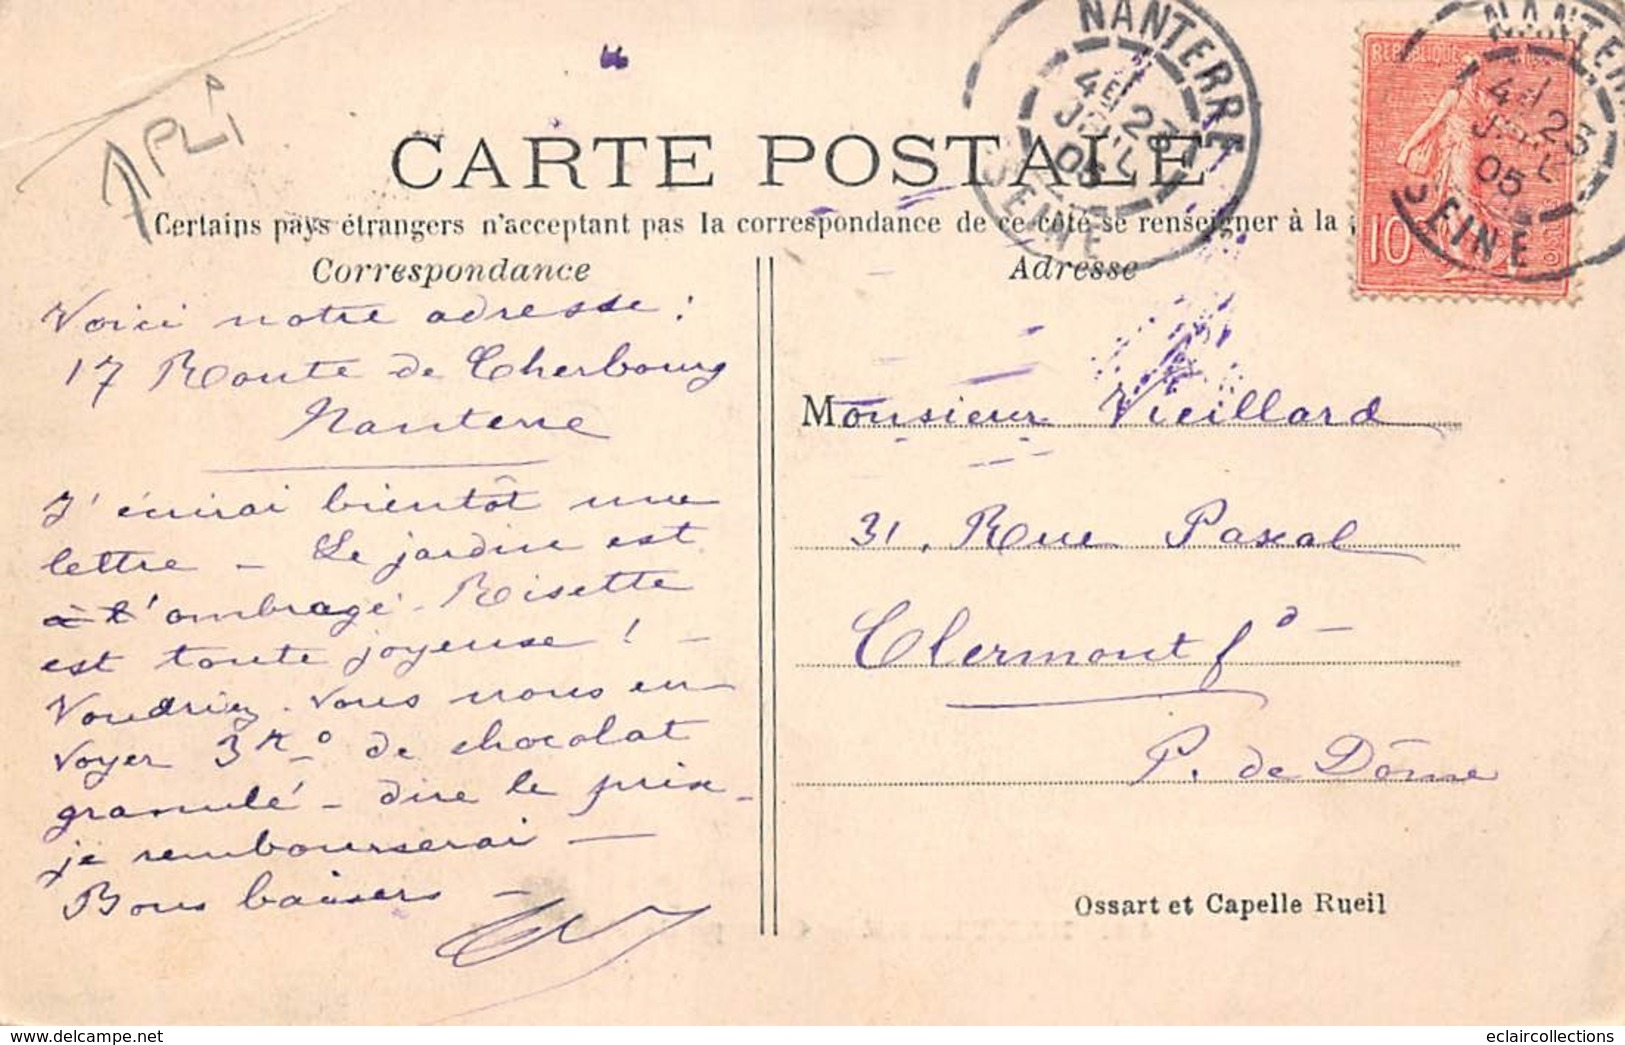 1 PLi
CARTE POSTALE
Certains pays étrangers n'acceptant pas la correspondance de ce côté se renseigner à la
Correspondance
Voici notre adresse :
17 Route de Cherbourg
Nanterre
J'écrirai bientôt une
lettre — Le jardin est
à l'ombragé. Risette
est toute joyeuse ! —
Voudriez-vous nous en
voyer 3 K° de chocolat
granulé — dire le prix —
je rembourserai —
Bons baisers —
Adresse
Monsieur Vieillard
31, Rue Pascal
Clermont fd —
P. de Dôme
Ossart et Capelle Rueil
NANTERRE
4E 23
JUIL
05
SEINE
REPUBLIQUE
10
POSTES
NANTERRE
4E 23
JUIL
05
SEINE
eclaircollections